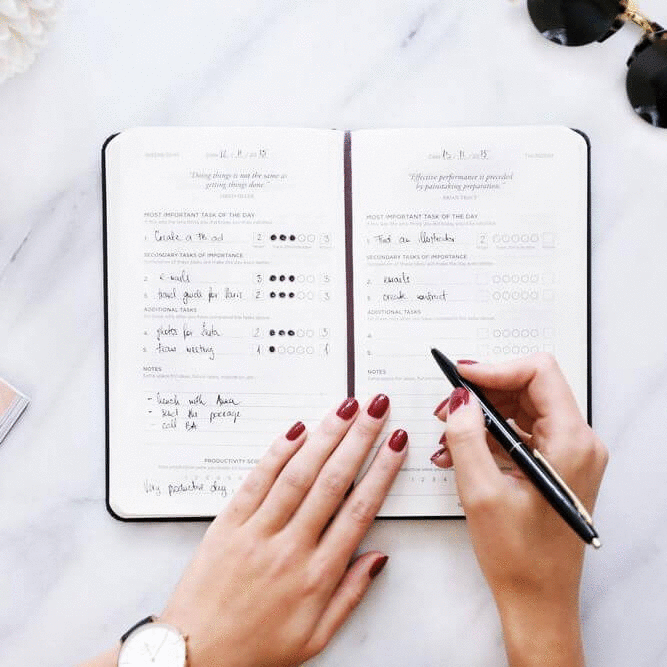 WEDNESDAY DATE 12 / 11 / 2015
"Doing things is not the same as
getting things done."
JARED SILVER
MOST IMPORTANT TASK OF THE DAY
1. Create a FB ad 2 3
SECONDARY TASKS OF IMPORTANCE
2. e-mails 3 3
3. travel guide for Paris 2 3
ADDITIONAL TASKS
4. photos for Insta 2 3
5. team meeting 1 1
NOTES
- lunch with Anna
- send the package
- call BA
PRODUCTIVITY SCORE
Very productive day
DATE 13 / 11 / 2015 THURSDAY
"Effective performance is preceded
by painstaking preparation."
BRIAN TRACY
MOST IMPORTANT TASK OF THE DAY
1. Find an illustrator
SECONDARY TASKS OF IMPORTANCE
2. emails
3. create contract
ADDITIONAL TASKS
4.
5.
NOTES
1 2 3 4